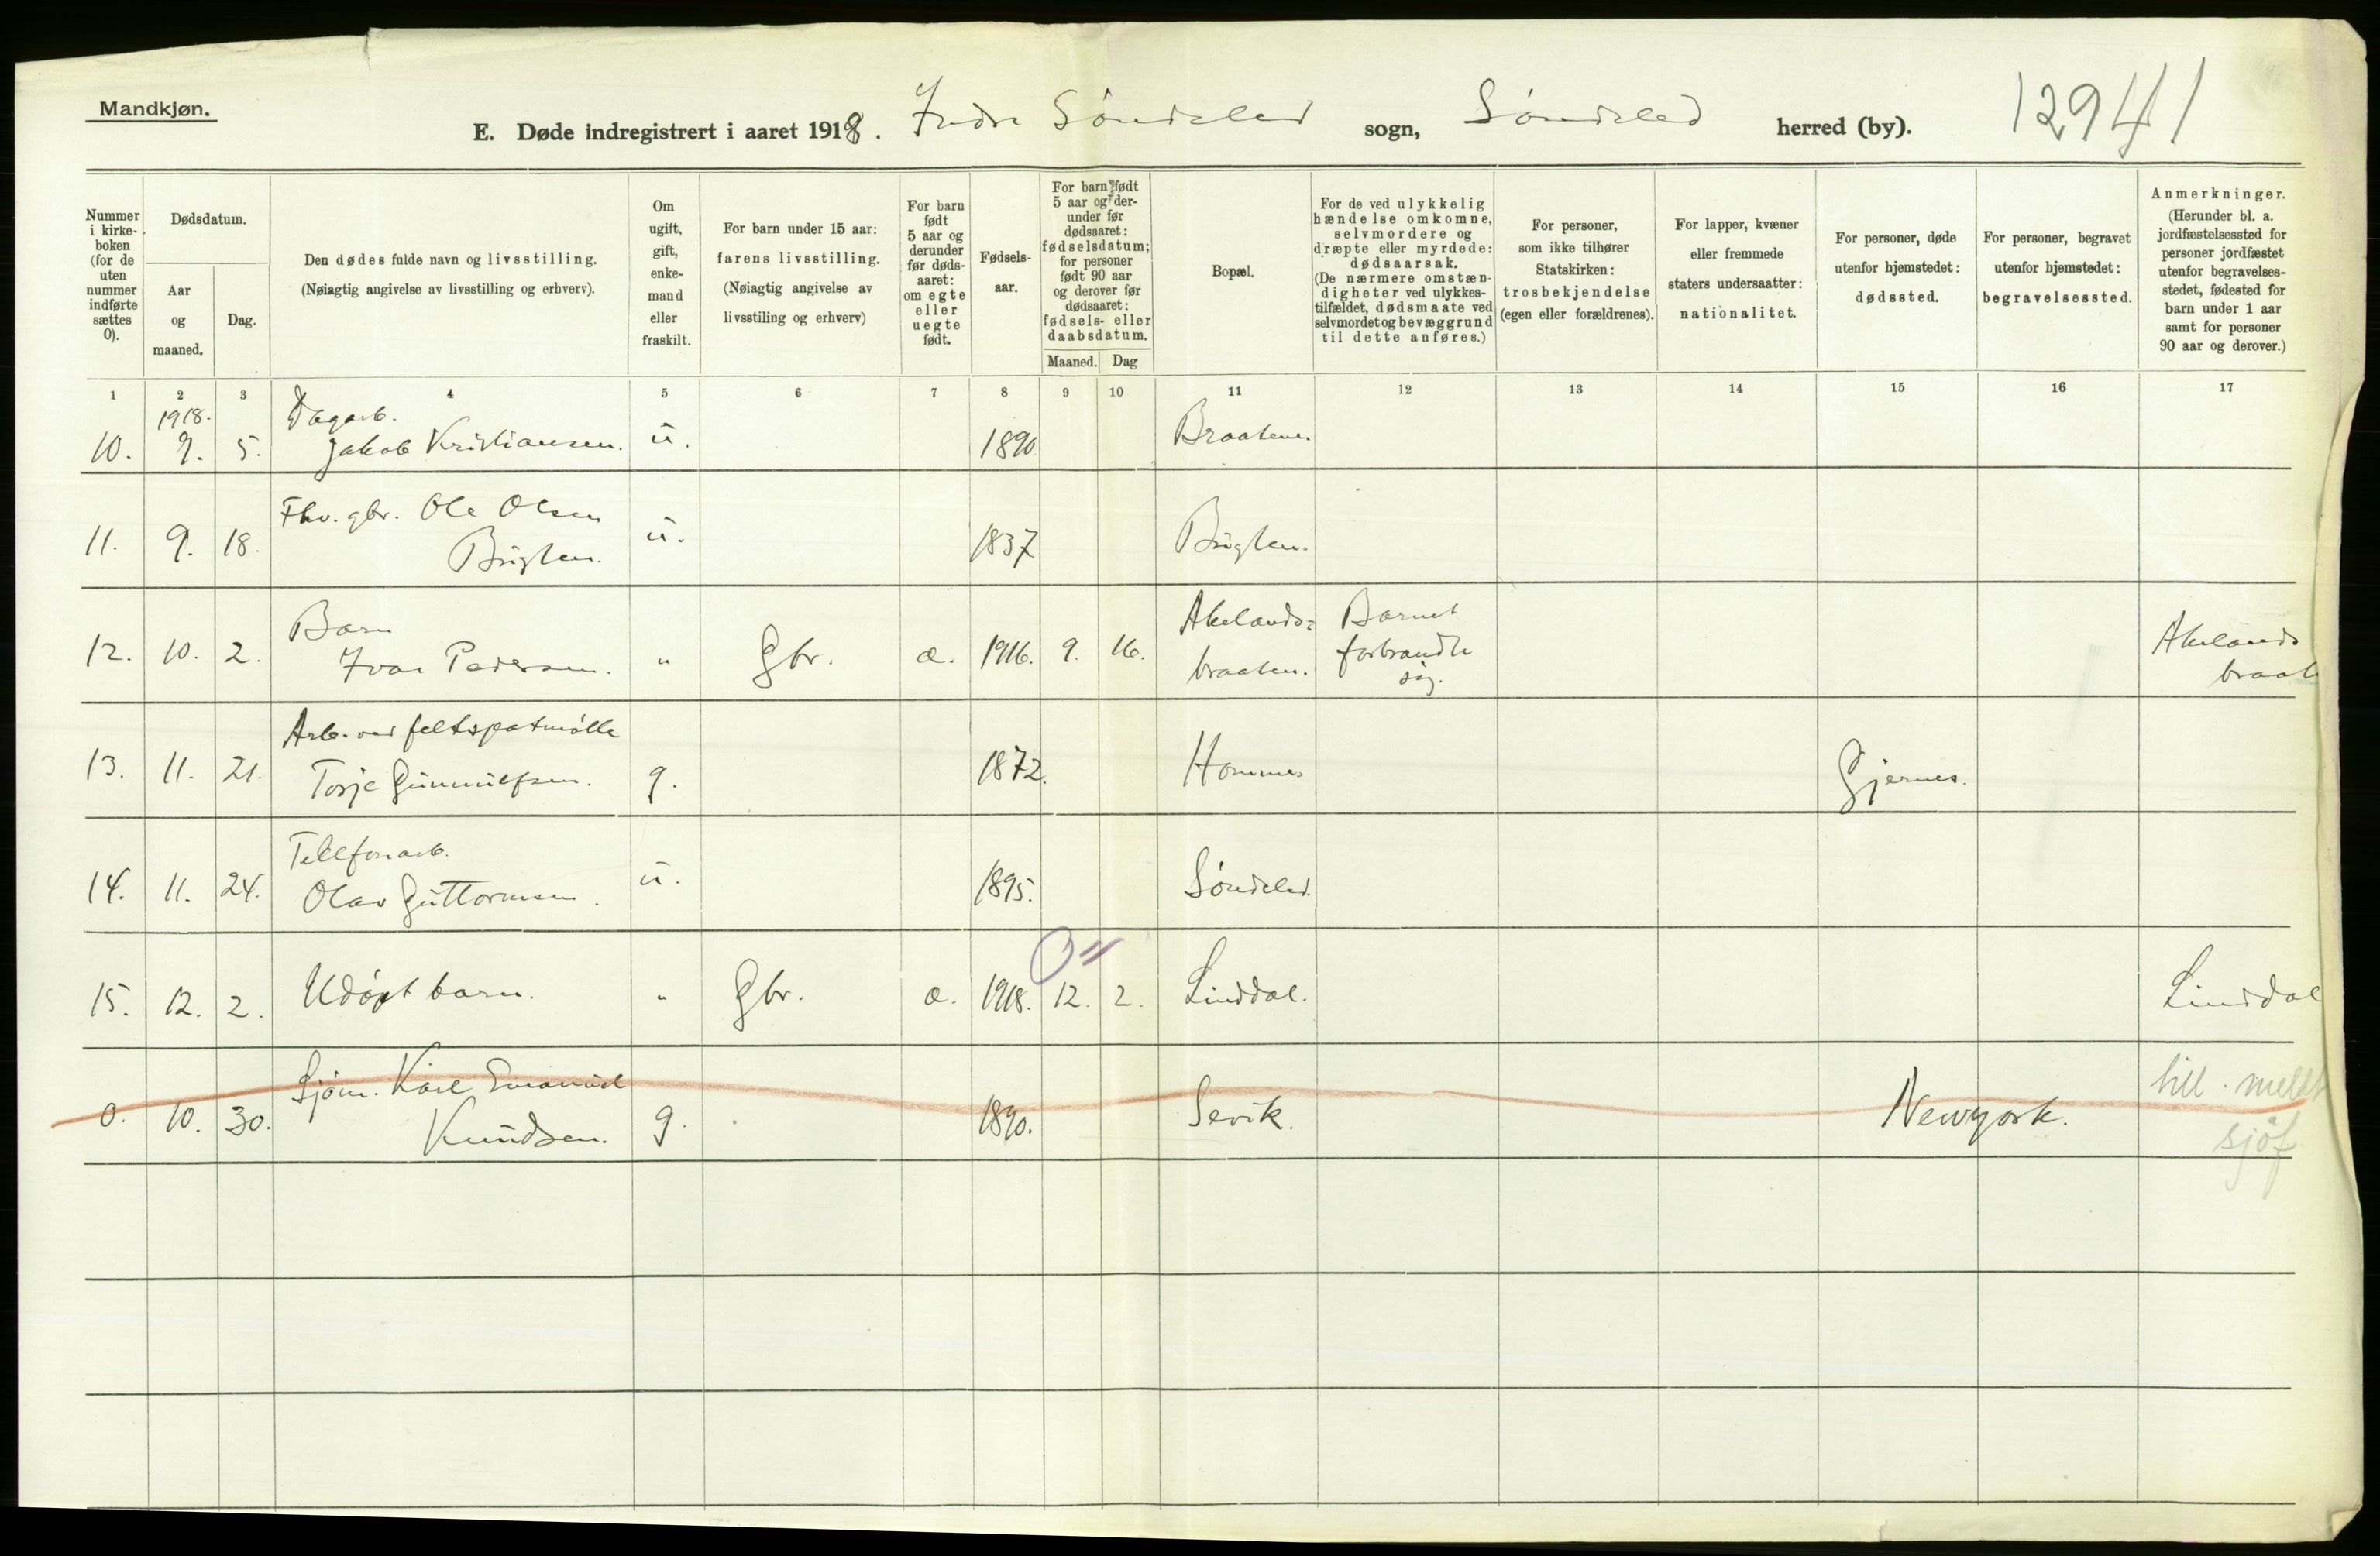 Mandkjøn.
E. Døde indregistrert i aaret 1918. Indre Søndeled sogn, Søndeled herred (by). 12941
Nummer i kirkeboken (for de uten nummer indførte sættes 0).
Dødsdatum.
Aar og maaned.
Dag.
Den dødes fulde navn og livsstilling.
(Nøiagtig angivelse av livsstilling og erhverv).
Om ugift, gift, enkemand eller fraskilt.
For barn under 15 aar:
farens livsstilling.
(Nøiagtig angivelse av
livsstiling og erhverv)
For barn født 5 aar og derunder før dødsaaret: om egte eller uegte født.
Fødsels-
aar.
For barn født 5 aar og derunder før dødsaaret: fødselsdatum; for personer født 90 aar og derover før dødsaaret: fødsels- eller daabsdatum.
Maaned. Dag
Bopæl.
For de ved ulykkelig
hændelse omkomne,
selvmordere og
dræpte eller myrdede:
dødsaarsak.
(De nærmere omstæn-
digheter ved ulykkes-
tilfældet, dødsmaate ved
selvmordet og bevæggrund
til dette anføres.)
For personer,
som ikke tilhører
Statskirken:
trosbekjendelse
(egen eller forældrenes).
For lapper, kvæner
eller fremmede
staters undersaatter:
nationalitet.
For personer, døde
utenfor hjemstedet:
dødssted.
For personer, begravet
utenfor hjemstedet:
begravelsessted.
Anmerkninger.
(Herunder bl. a.
jordfæstelsessted for
personer jordfæstet
utenfor begravelses-
stedet, fødested for
barn under 1 aar
samt for personer
90 aar og derover.)
1 2 3 4 5 6 7 8 9 10 11 12 13 14 15 16 17
1918. Dagarb.
10. 9. 5. Jakob Kristiansen. u. 1890 Braaten.
Fhv. gbr. Ole Olsen
11. 9. 18. u. 1837
Barn Akelands= Barnet Akelands
12. 10. 2. Ivar Pedersen. " Gbr. æ. 1916. 9. 16. braaten. forbrandte sig. braat
Arb. ved feltspatmølle
13. 11. 21. Torje Gunnulfsen. g. 1872. Hommes Gjernes.
Telefonarb.
14. 11. 24. Olav Guttormsen. u. 1895. Søndeled.
15. 12. 2. Udøpt barn. " Gbr. æ. 1918. 12. 2. Linddal. Linddal
Sjøm. Karl Emanuel till. meldt
0. 10. 30. Knudsen. g. 1890. Sevik. Newyork. sjøf.